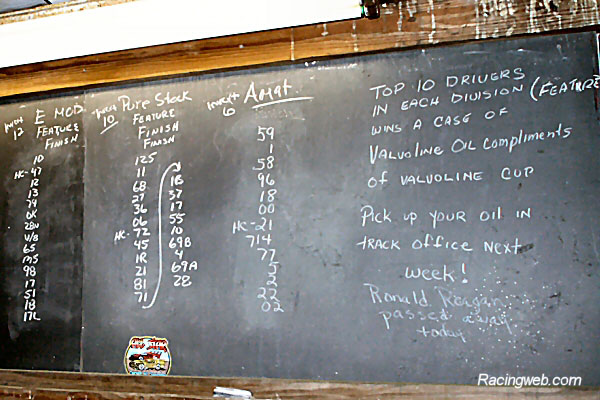 E MOD
12
FEATURE
FINISH
10
HC-47
12
13
79
OK
28U
V/8
65
M5
98
17
51
18
17L
Pure Stock
10
FEATURE
FINISH
FINISH
125
11
68
27
36
06
HC-72
45
1R
21
81
71
1B
37
17
55
10
69B
4
69A
28
Amat
6
59
1
58
96
18
00
HC-21
714
77
5
2
22
02
TOP 10 DRIVERS
IN EACH DIVISION (FEATURE
WINS A CASE OF
VALVOLINE OIL COMPLIMENTS
OF VALVOLINE CUP
PICK UP YOUR OIL IN
TRACK OFFICE NEXT
WEEK!
Ronald Reagan
passed away
today
Racingweb.com